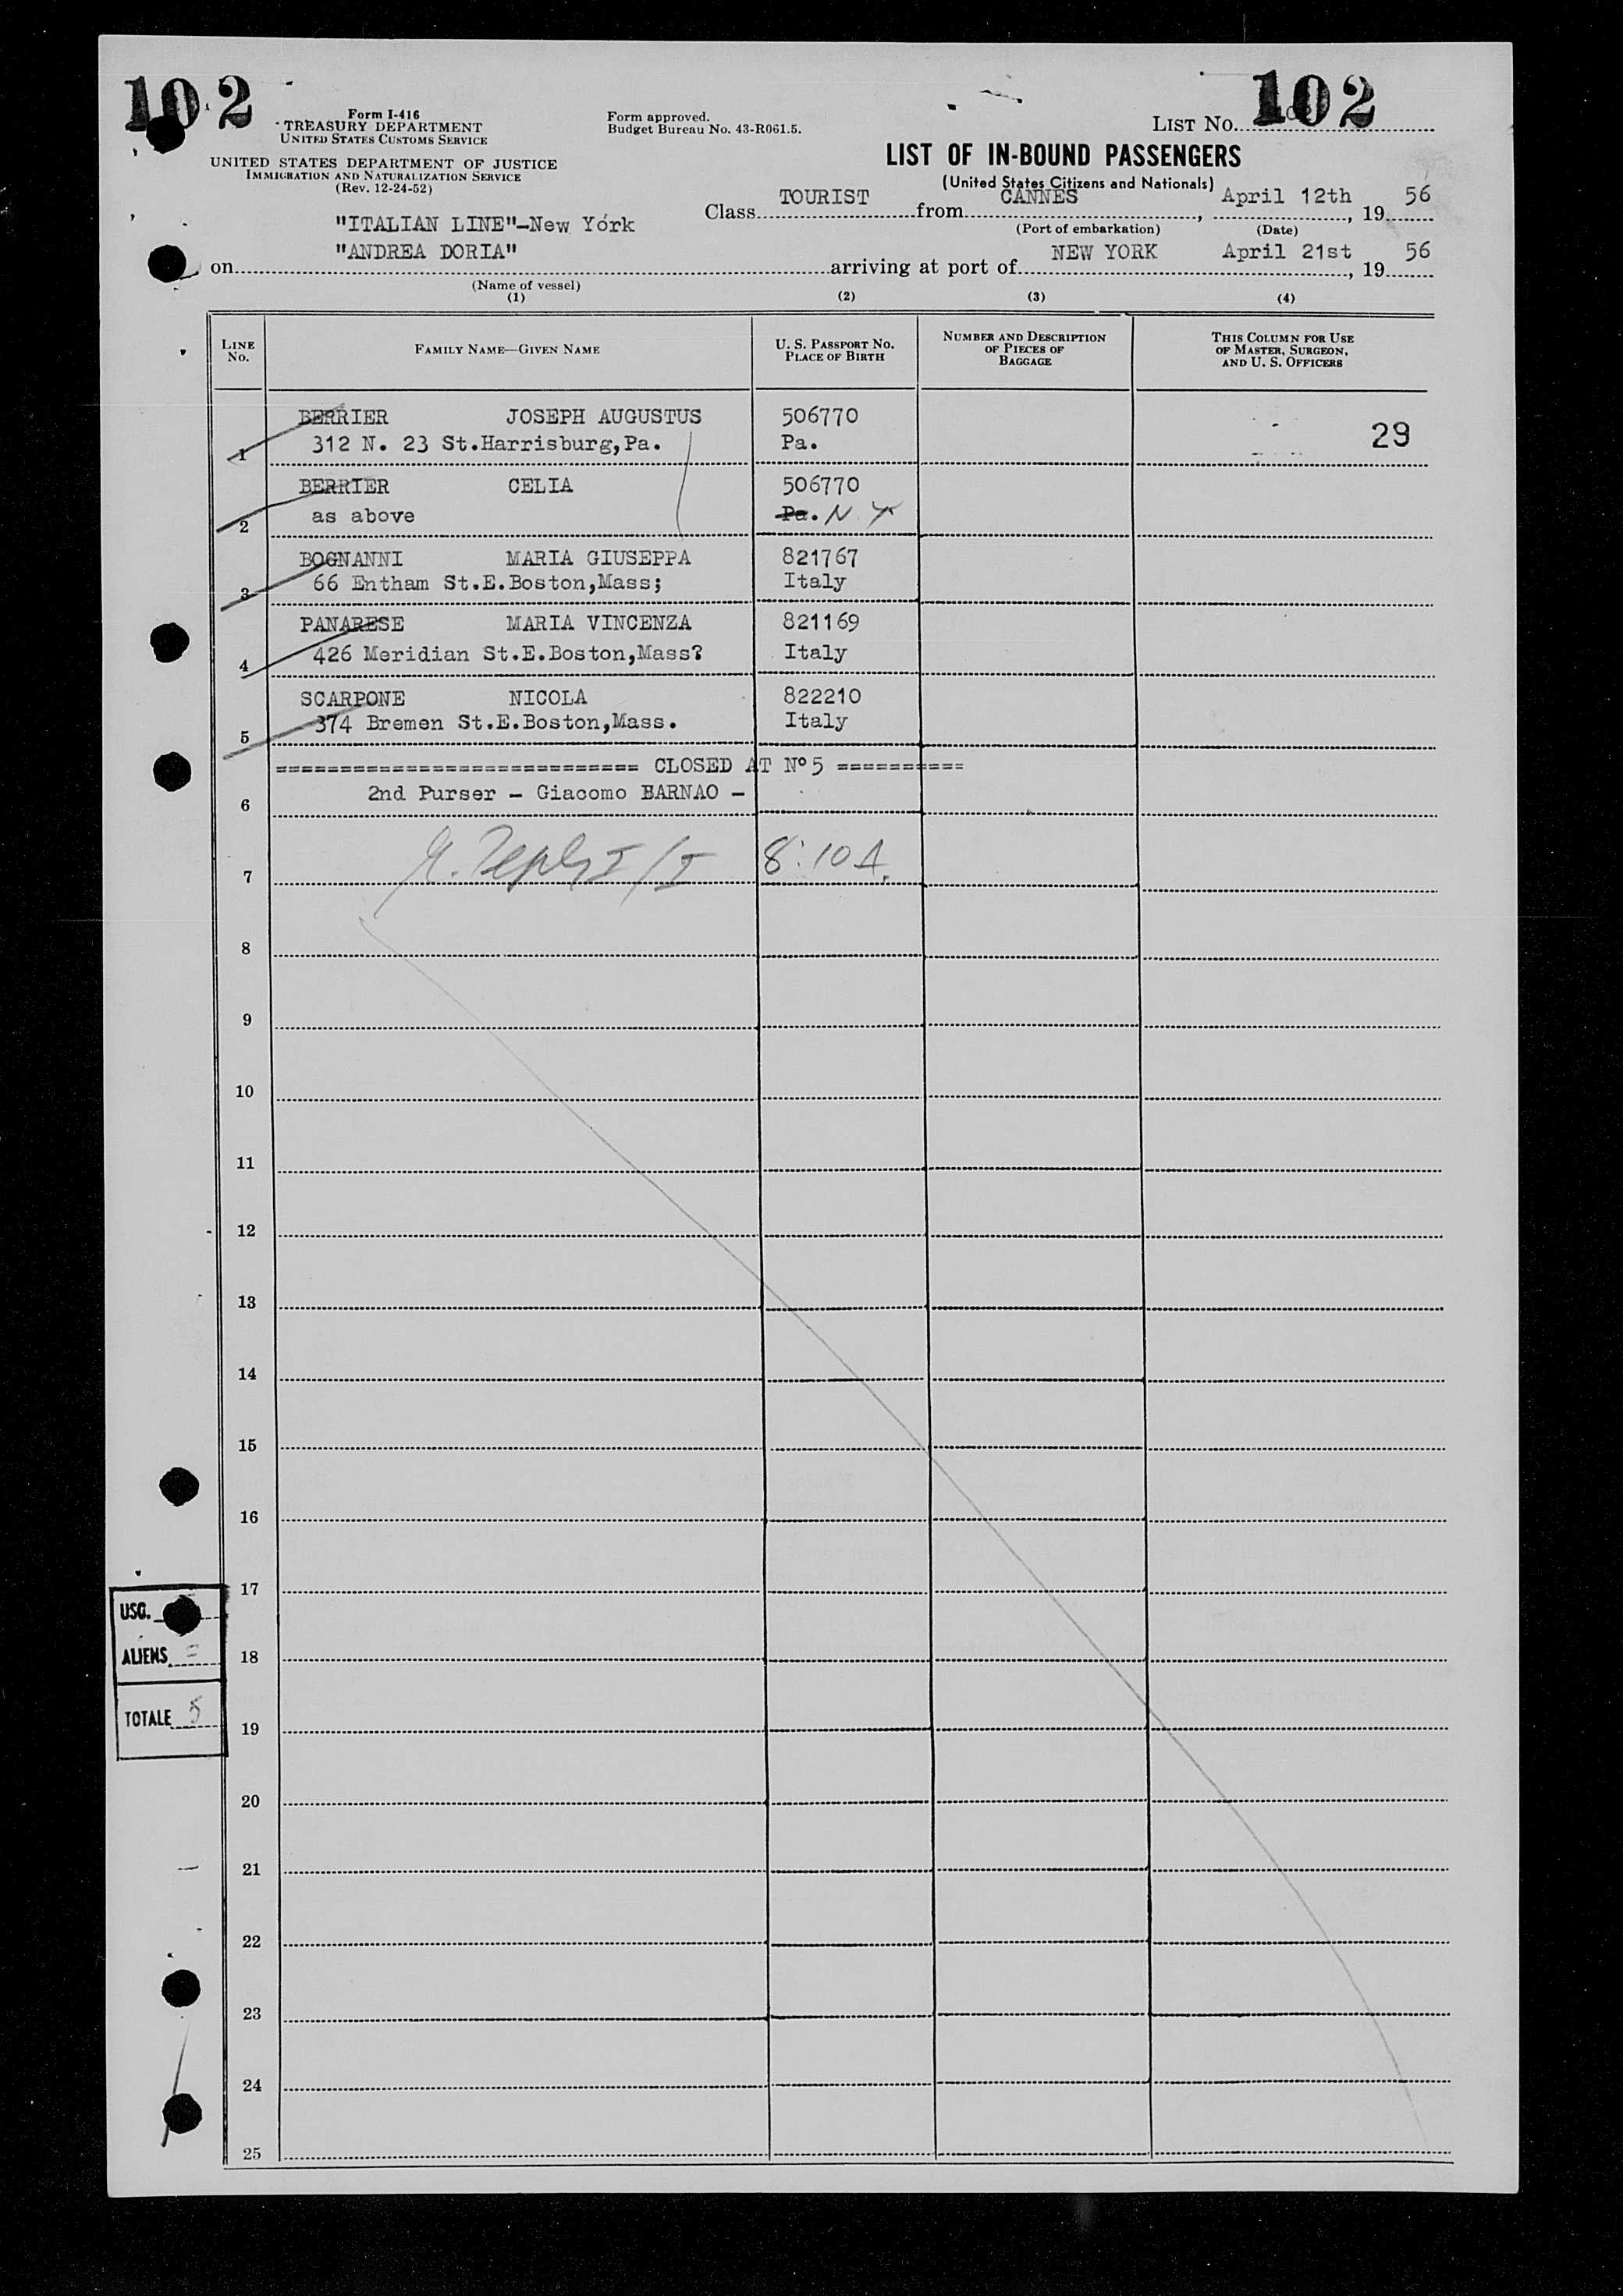 102
102
Form I-416
TREASURY DEPARTMENT
UNITED STATES CUSTOMS SERVICE
UNITED STATES DEPARTMENT OF JUSTICE
IMMIGRATION AND NATURALIZATION SERVICE
(Rev. 12-24-52)
Form approved.
Budget Bureau No. 43-R061.5.
LIST NO.
LIST OF IN-BOUND PASSENGERS
(United States Citizens and Nationals)
"ITALIAN LINE"-New York
Class TOURIST from CANNES, April 12th, 19 56
(Port of embarkation) (Date)
on "ANDREA DORIA" arriving at port of NEW YORK April 21st, 19 56
(Name of vessel)
(1) (2) (3) (4)
LINE NO.
FAMILY NAME—GIVEN NAME
U. S. PASSPORT NO.
PLACE OF BIRTH
NUMBER AND DESCRIPTION
OF PIECES OF
BAGGAGE
THIS COLUMN FOR USE
OF MASTER, SURGEON,
AND U. S. OFFICERS
BERRIER JOSEPH AUGUSTUS 506770
1 312 N. 23 St.Harrisburg,Pa. Pa. 29
BERRIER CELIA 506770
2 as above Pa. N Y
BOGNANNI MARIA GIUSEPPA 821767
3 66 Entham St.E.Boston,Mass; Italy
PANARESE MARIA VINCENZA 821169
4 426 Meridian St.E.Boston,Mass? Italy
SCARPONE NICOLA 822210
5 374 Bremen St.E.Boston,Mass. Italy
============================ CLOSED AT Nº 5 ==========
6 2nd Purser - Giacomo BARNAO -
7 8:10 A.
8
9
10
11
12
13
14
15
16
17
18
19
20
21
22
23
24
25
USC.
ALIENS =
TOTALE 5